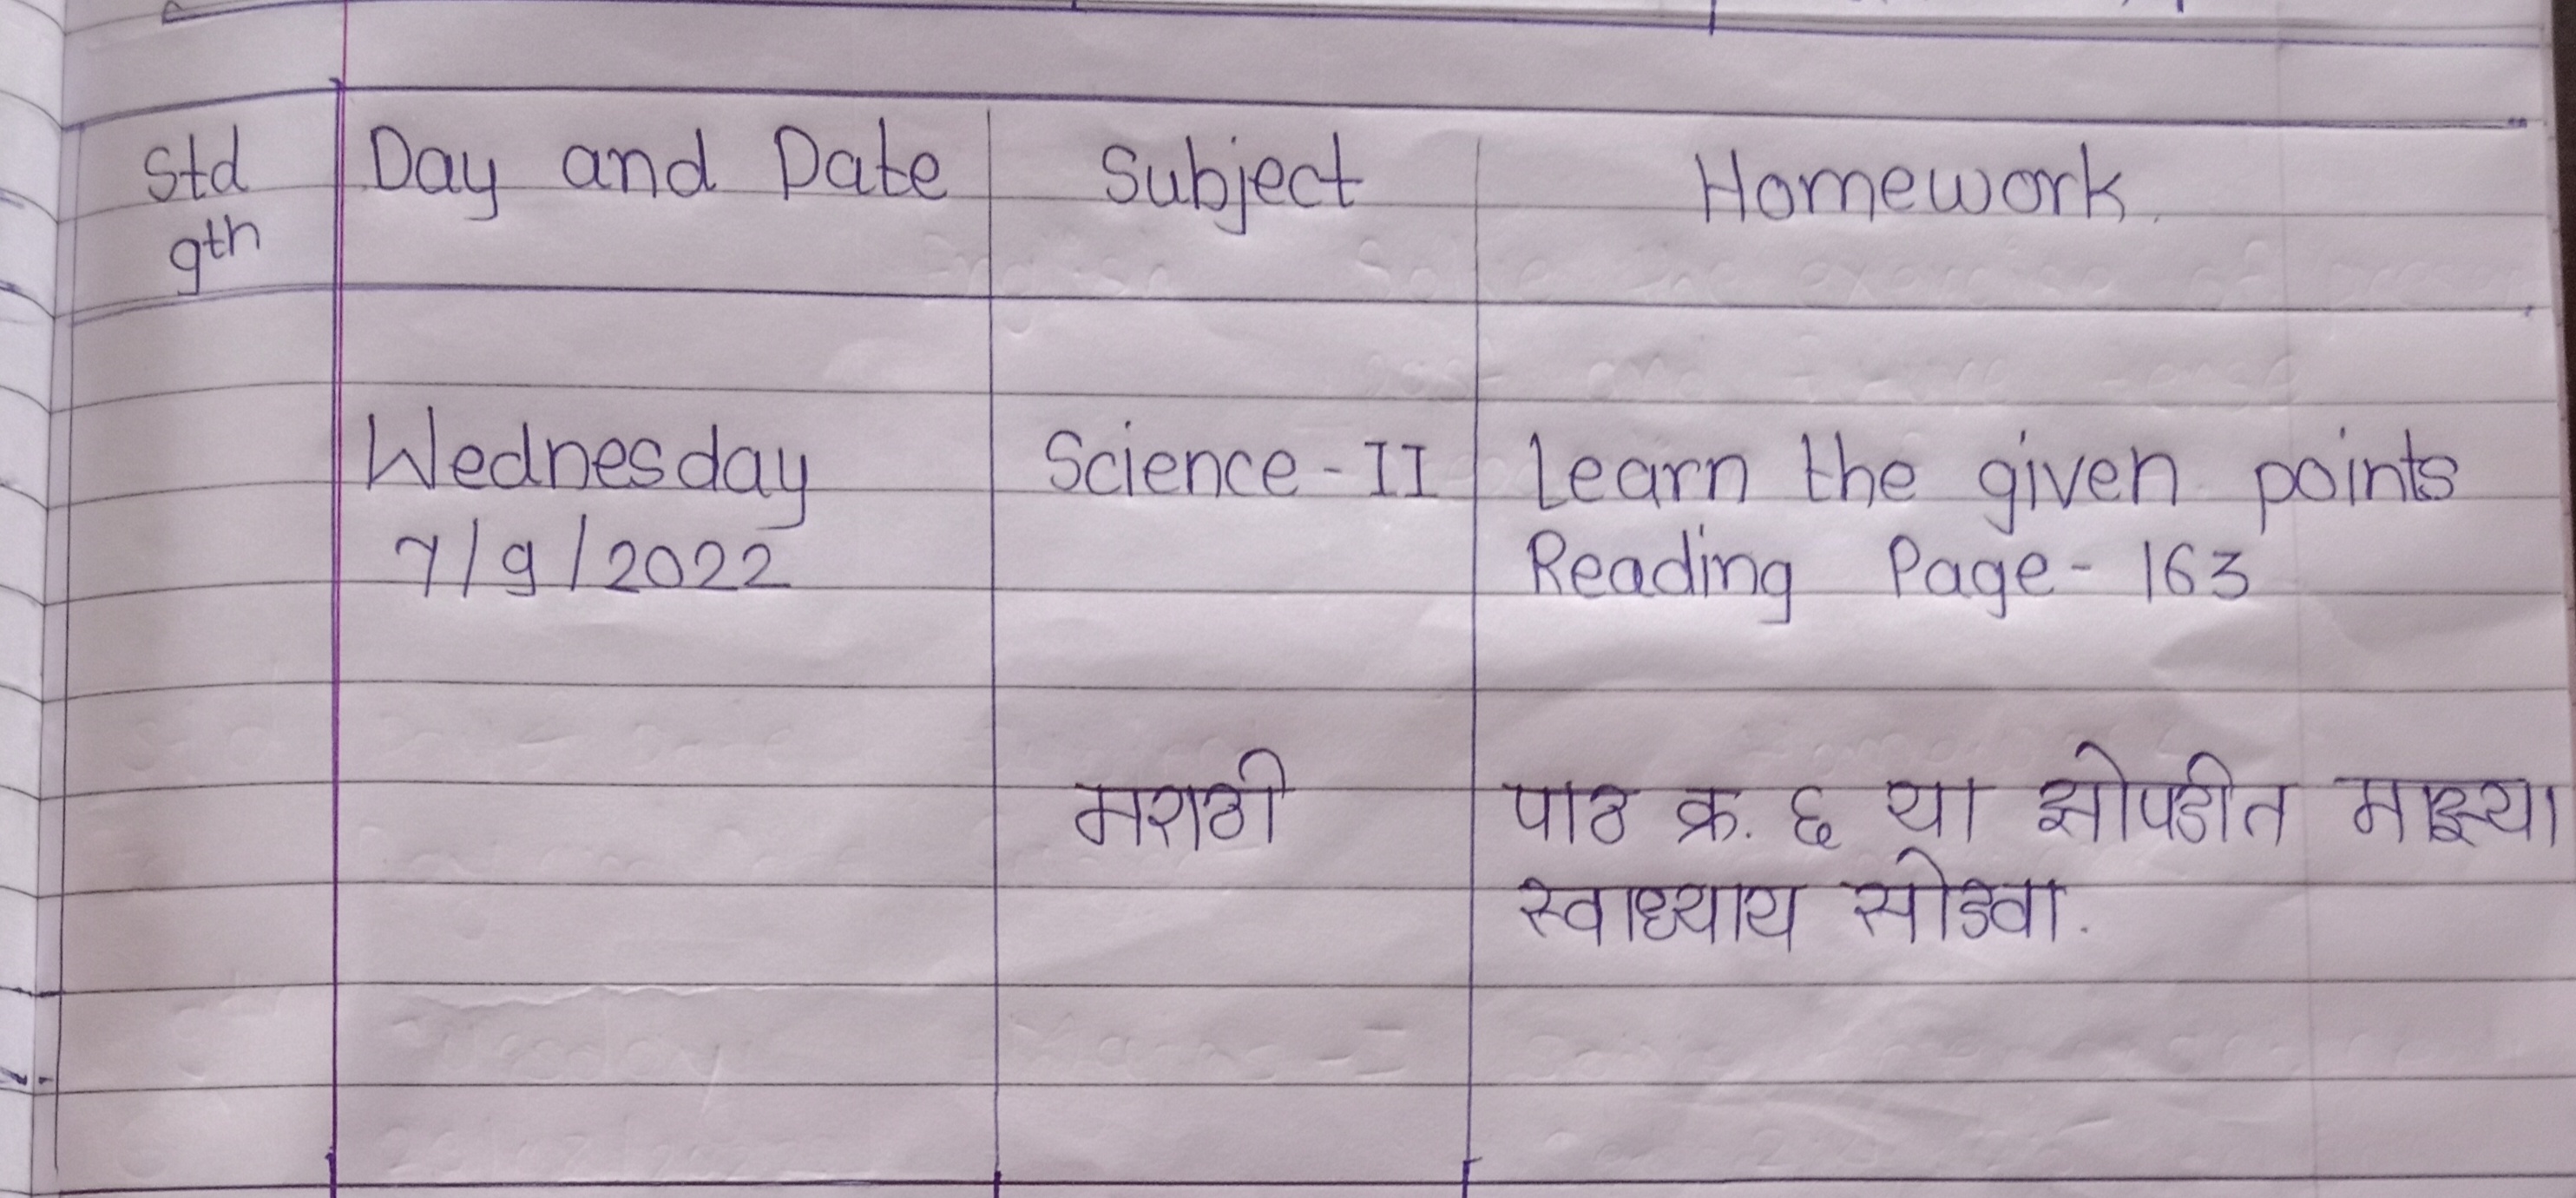 Std Day and Date Subject Homework.
9th
Wednesday Science - II Learn the given points
7/9/2022 Reading Page - 163
मराठी पाठ क्र. ६ या झोपडीत माझ्या
स्वाध्याय सोडवा.